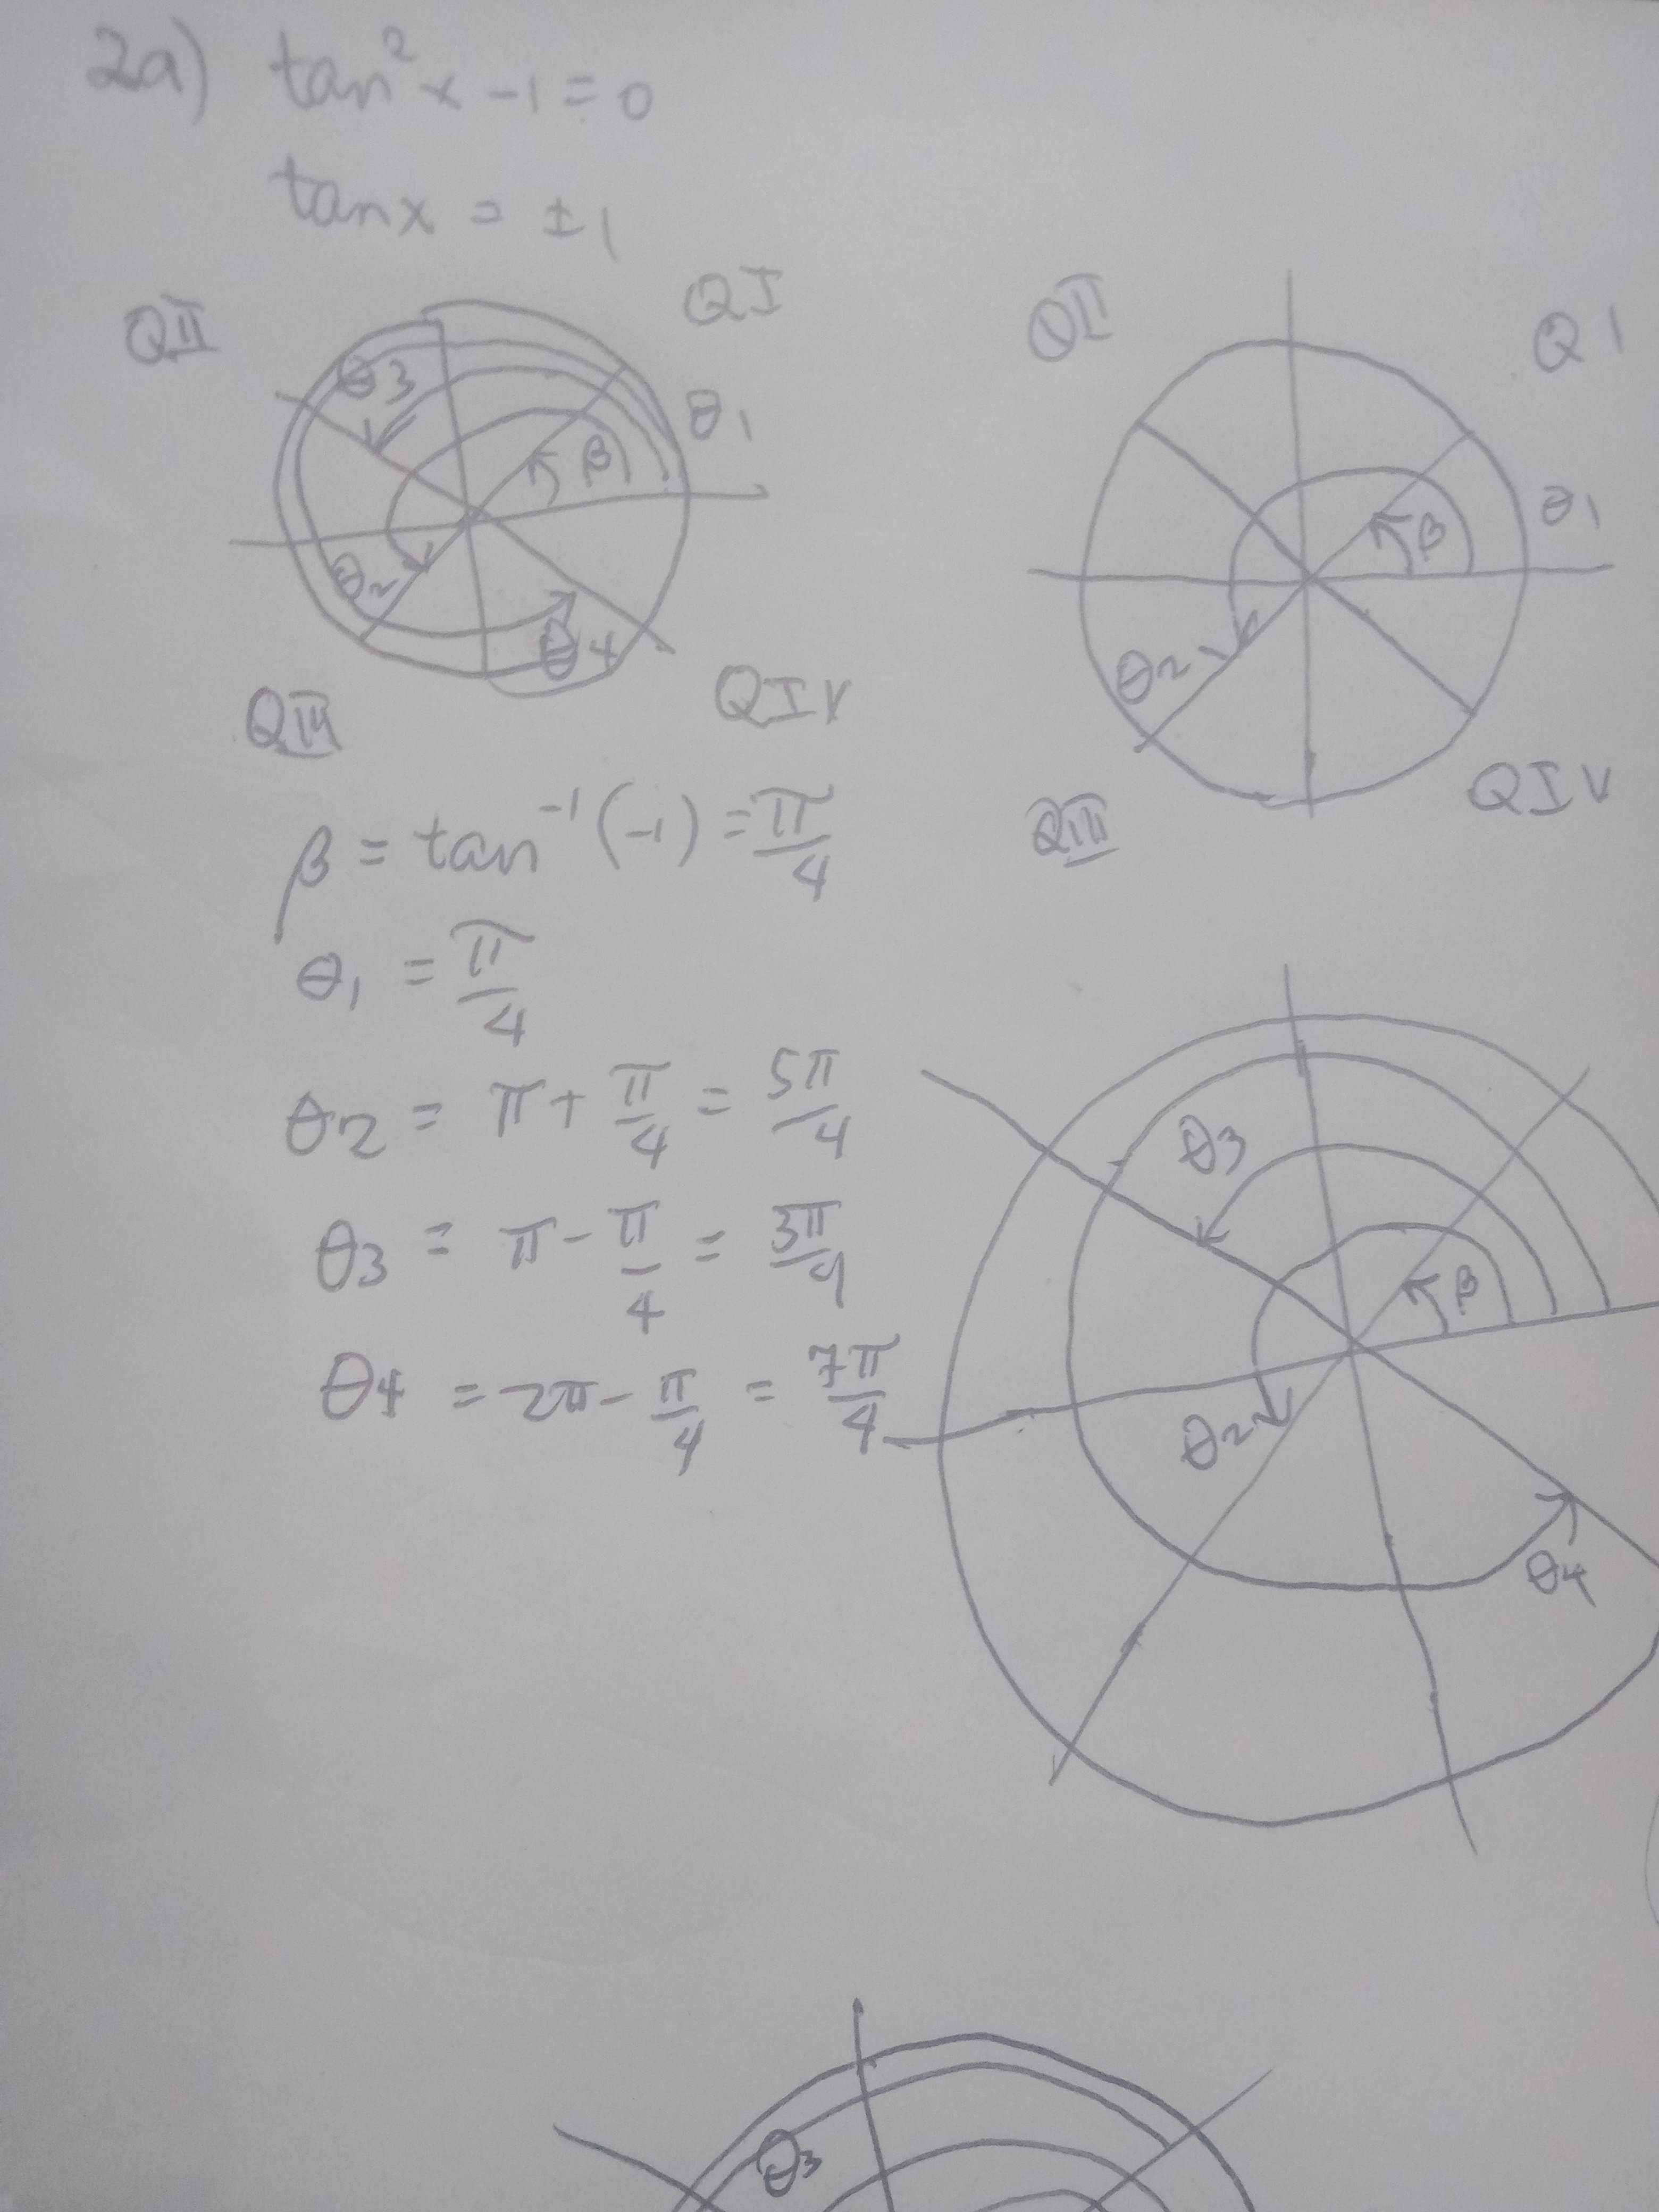 2a) tan² x - 1 = 0
tan x = ± 1
QII QI
θ3 θ1
β
θ2 θ4
QIII QIV
QII Q1
θ1
β
θ2
QIII QIV
β = tan⁻¹ (-1) = π/4
θ1 = π/4
θ2 = π + π/4 = 5π/4
θ3 = π - π/4 = 3π/4
θ4 = 2π - π/4 = 7π/4
θ3
β
θ2
θ4
θ3